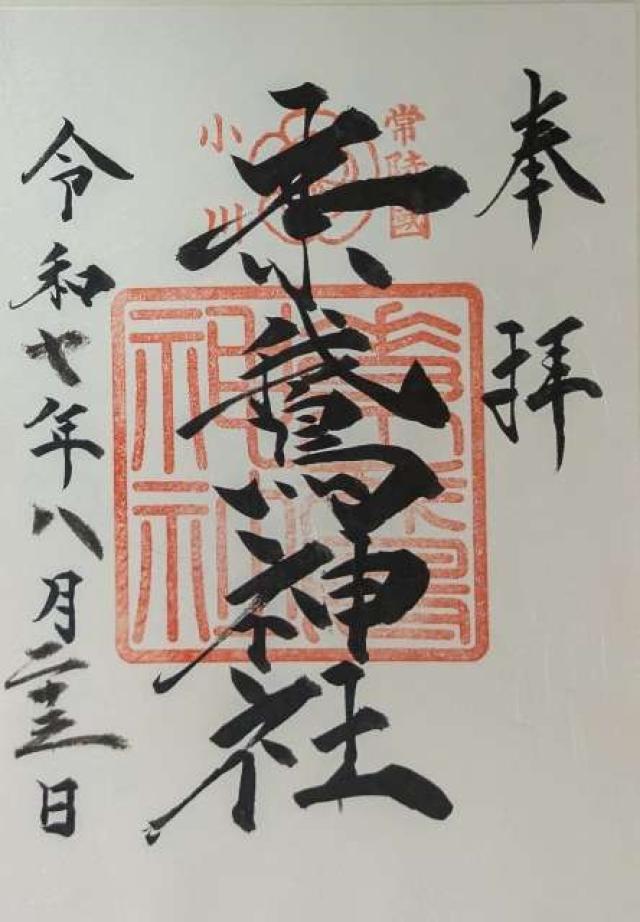 奉拝
常陸國
小川
素鵞神社
素鵞神社
令和七年八月二十三日